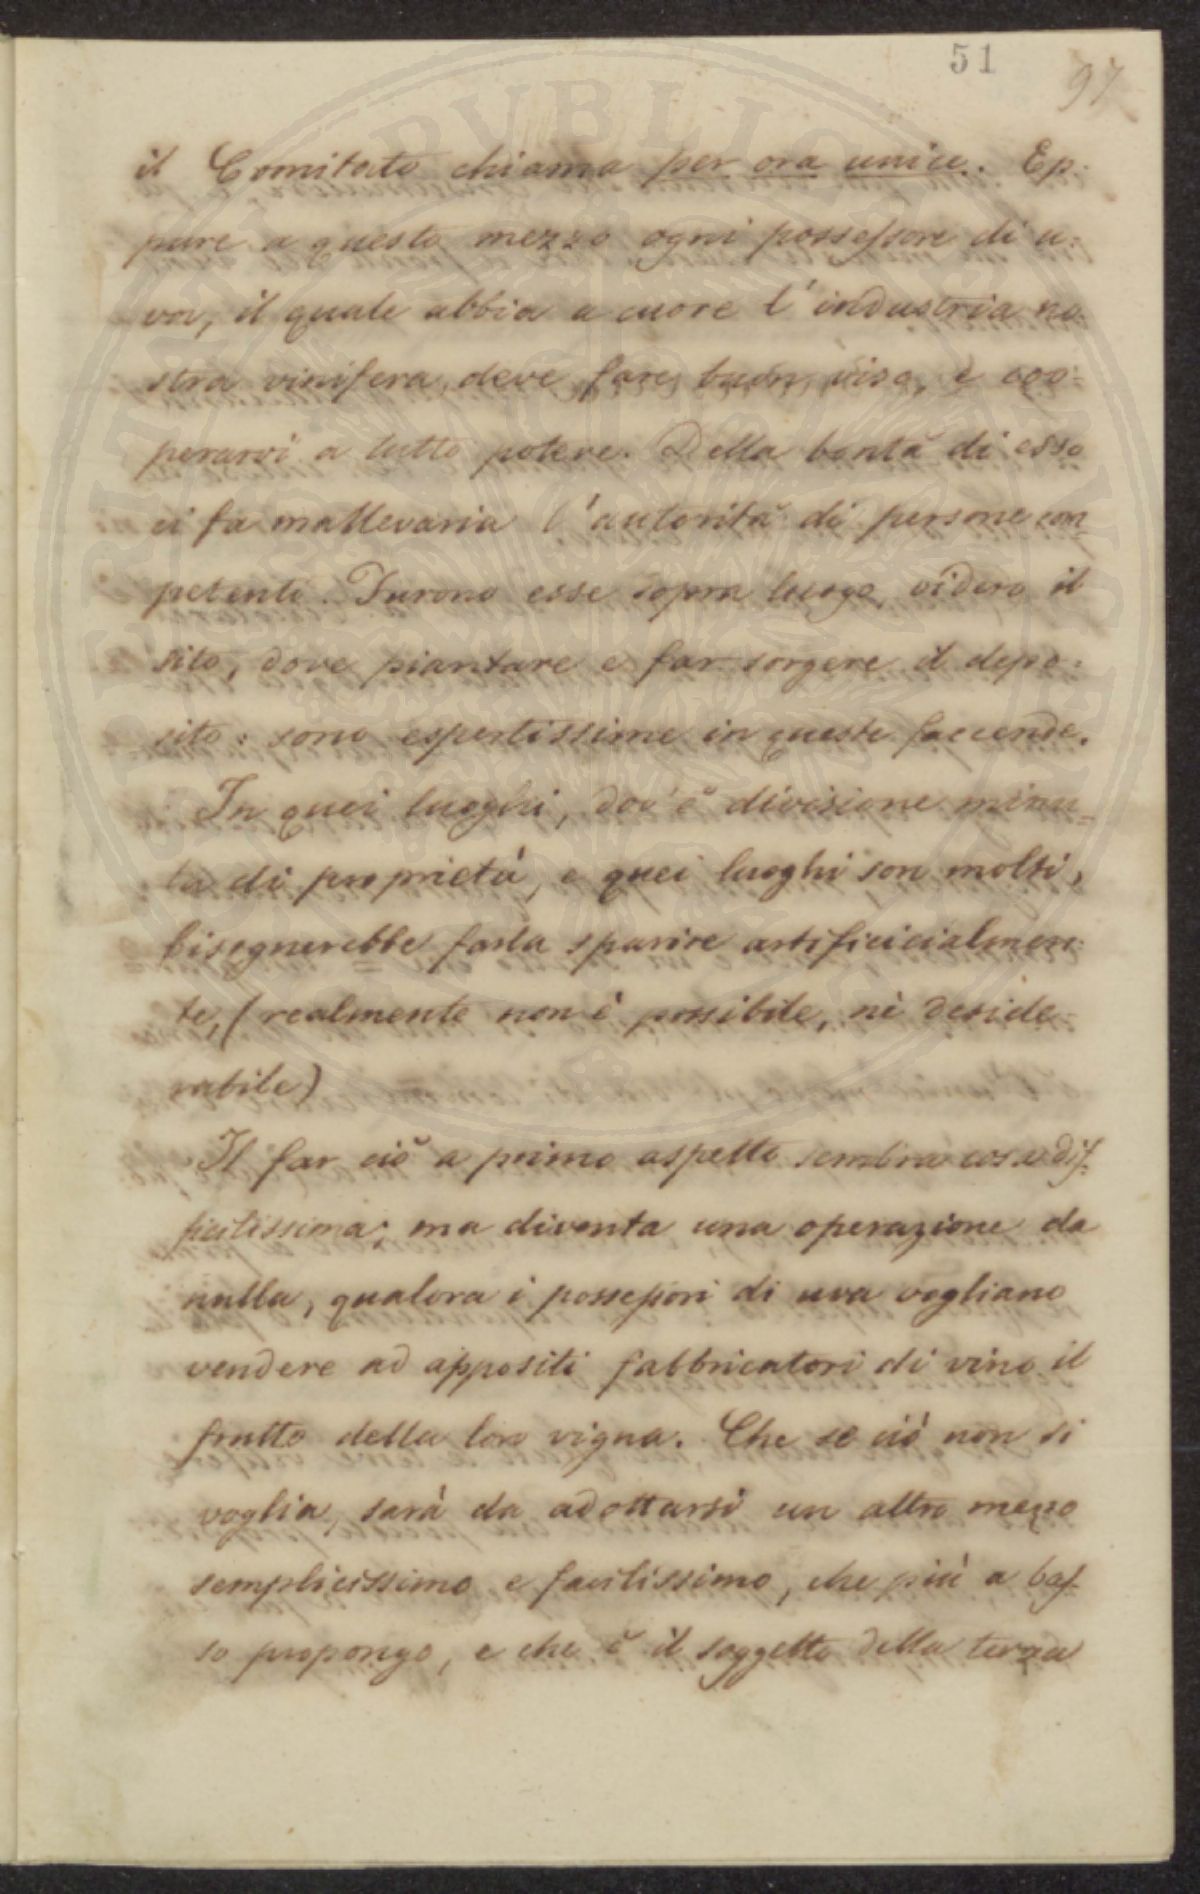 51
97
il Comitato chiama per ora unico. Ep-
pure a questo mezzo ogni possessore di u-
va, il quale abbia a cuore l'industria no-
stra vinifera, deve fare buon viso, e coo-
perarvi a tutto potere. Della bontà di esso
ci fa mallevaria l'autorità di persone com-
petenti. Furono esse sopra luogo, videro il
sito, dove piantare e far sorgere il depo-
sito: sono espertissime in queste faccende.
In quei luoghi, dov'è divisione minu-
ta di proprietà, e quei luoghi son molti,
bisognerebbe farla sparire artificicialmen-
te, (realmente non è possibile, nè deside-
rabile)
Il far ciò a primo aspetto sembra cosa dif-
ficilissima; ma diventa una operazione da
nulla, qualora i possessori di uva vogliano
vendere ad appositi fabbricatori di vino il
frutto della loro vigna. Che se ciò non si
voglia, sarà da adottarsi un altro mezzo
semplicissimo e facilissimo, che più a bas-
so propongo, e che è il soggetto della terza